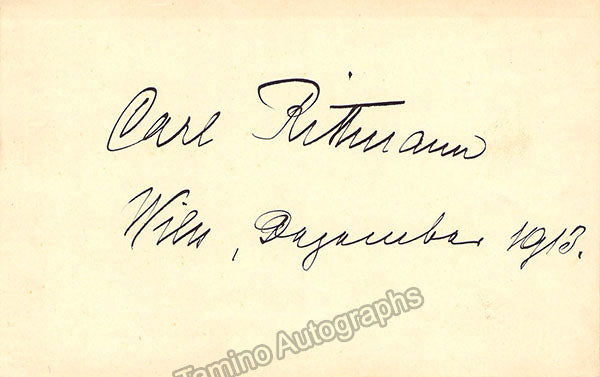 Carl Rittmann
Wien, Dezember 1913.
Tamino Autographs